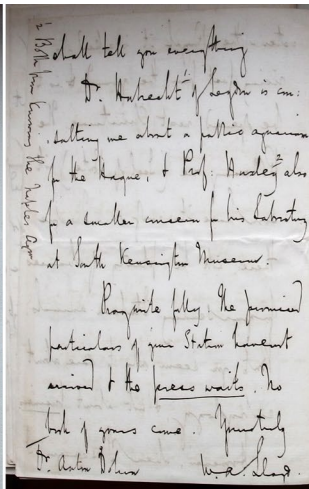 shall tell you everything
Dr. Hubrecht¹ of Leyden is con:
:sulting me about a public aquarium
for the Hague, & Prof: Huxley² also
for a smaller one for his Laboratory
at South Kensington Museum.
Pray write fully. The promised
particulars of your Station havent
arrived & the press waits. No
book of yours came. Yours truly
Dr. Anton Dohrn W. A. Lloyd.
2 Both men knows the Naples Aqm